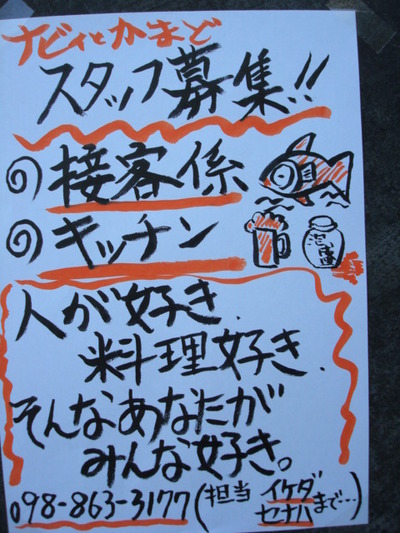 ナビィとかまど
スタッフ募集!!
の接客係
のキッチン
泡盛
人が好き.
料理好き.
そんなあなたが
みんな好き。
098-863-3177(担当 イケダ
セナハまで…)